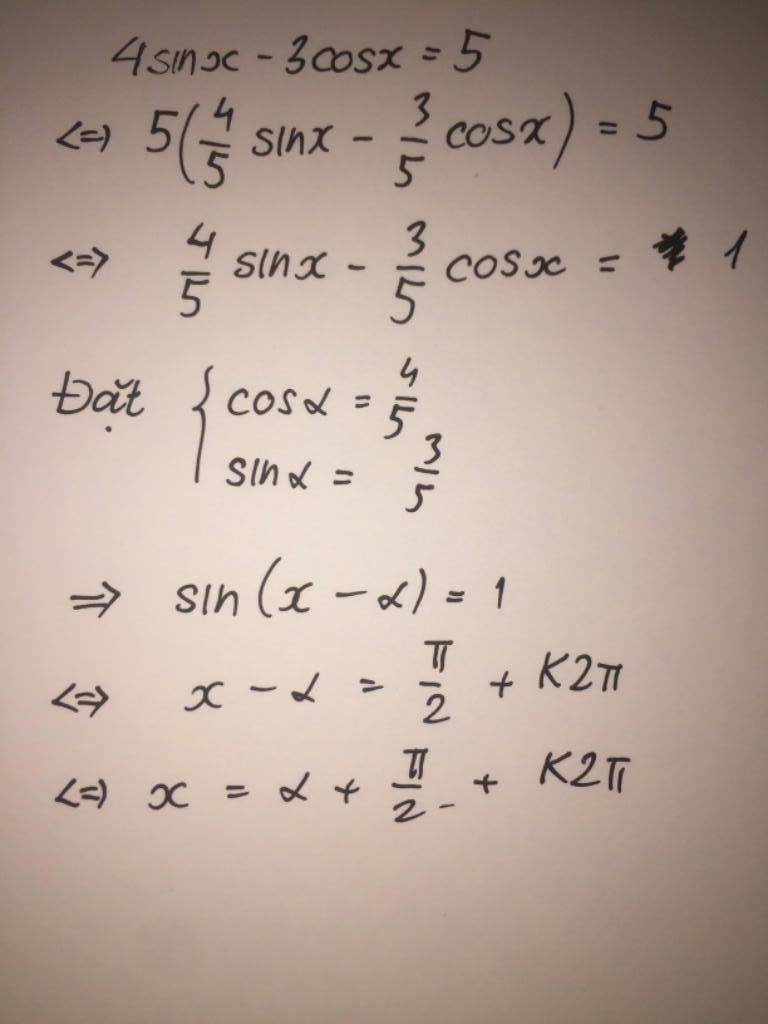 4sinx - 3cosx = 5
<=> 5(4/5 sinx - 3/5 cosx) = 5
<=> 4/5 sinx - 3/5 cosx = 1
Đặt { cosα = 4/5
sinα = 3/5
=> sin(x - α) = 1
<=> x - α = π/2 + K2π
<=> x = α + π/2 + K2π